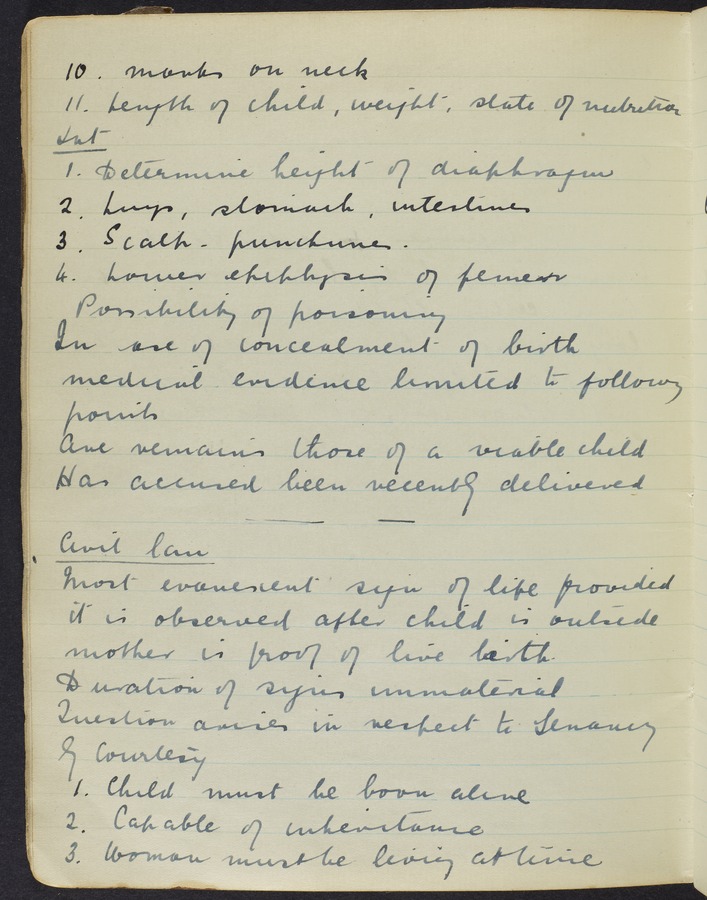 10. marks on neck
11. Length of child, weight, state of nutrition
Int
1. Determine height of diaphragm
2. Lungs, stomach, intestines
3. Scalp - punctures.
4. Lower epiphysis of femur
Possibility of poisoning
In case of concealment of birth
medical evidence limited to following
points
Are remains those of a viable child
Has accused been recently delivered
Civil law
Most evanescent sign of life provided
it is observed after child is outside
mother is proof of live birth.
Duration of signs immaterial
Question arises in respect to Tenancy
by Courtesy
1. Child must be born alive
2. Capable of inheritance
3. Woman must be living at time